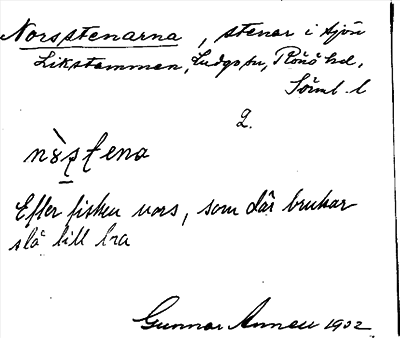 Norsstenarna, stenar i sjön
Likstammen, Ludgo sn, Rönö hd,
Söml. l
2.
Efter fisken nors, som där brukar
slå till bra
Gunnar Annell 1932